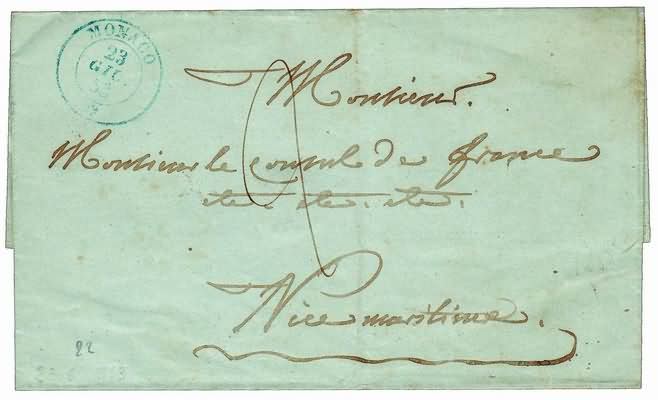 MONACO
23
GIU.
Monsieur.
Monsieur le consul de france
etc. etc. etc.
Nice maritime.
22